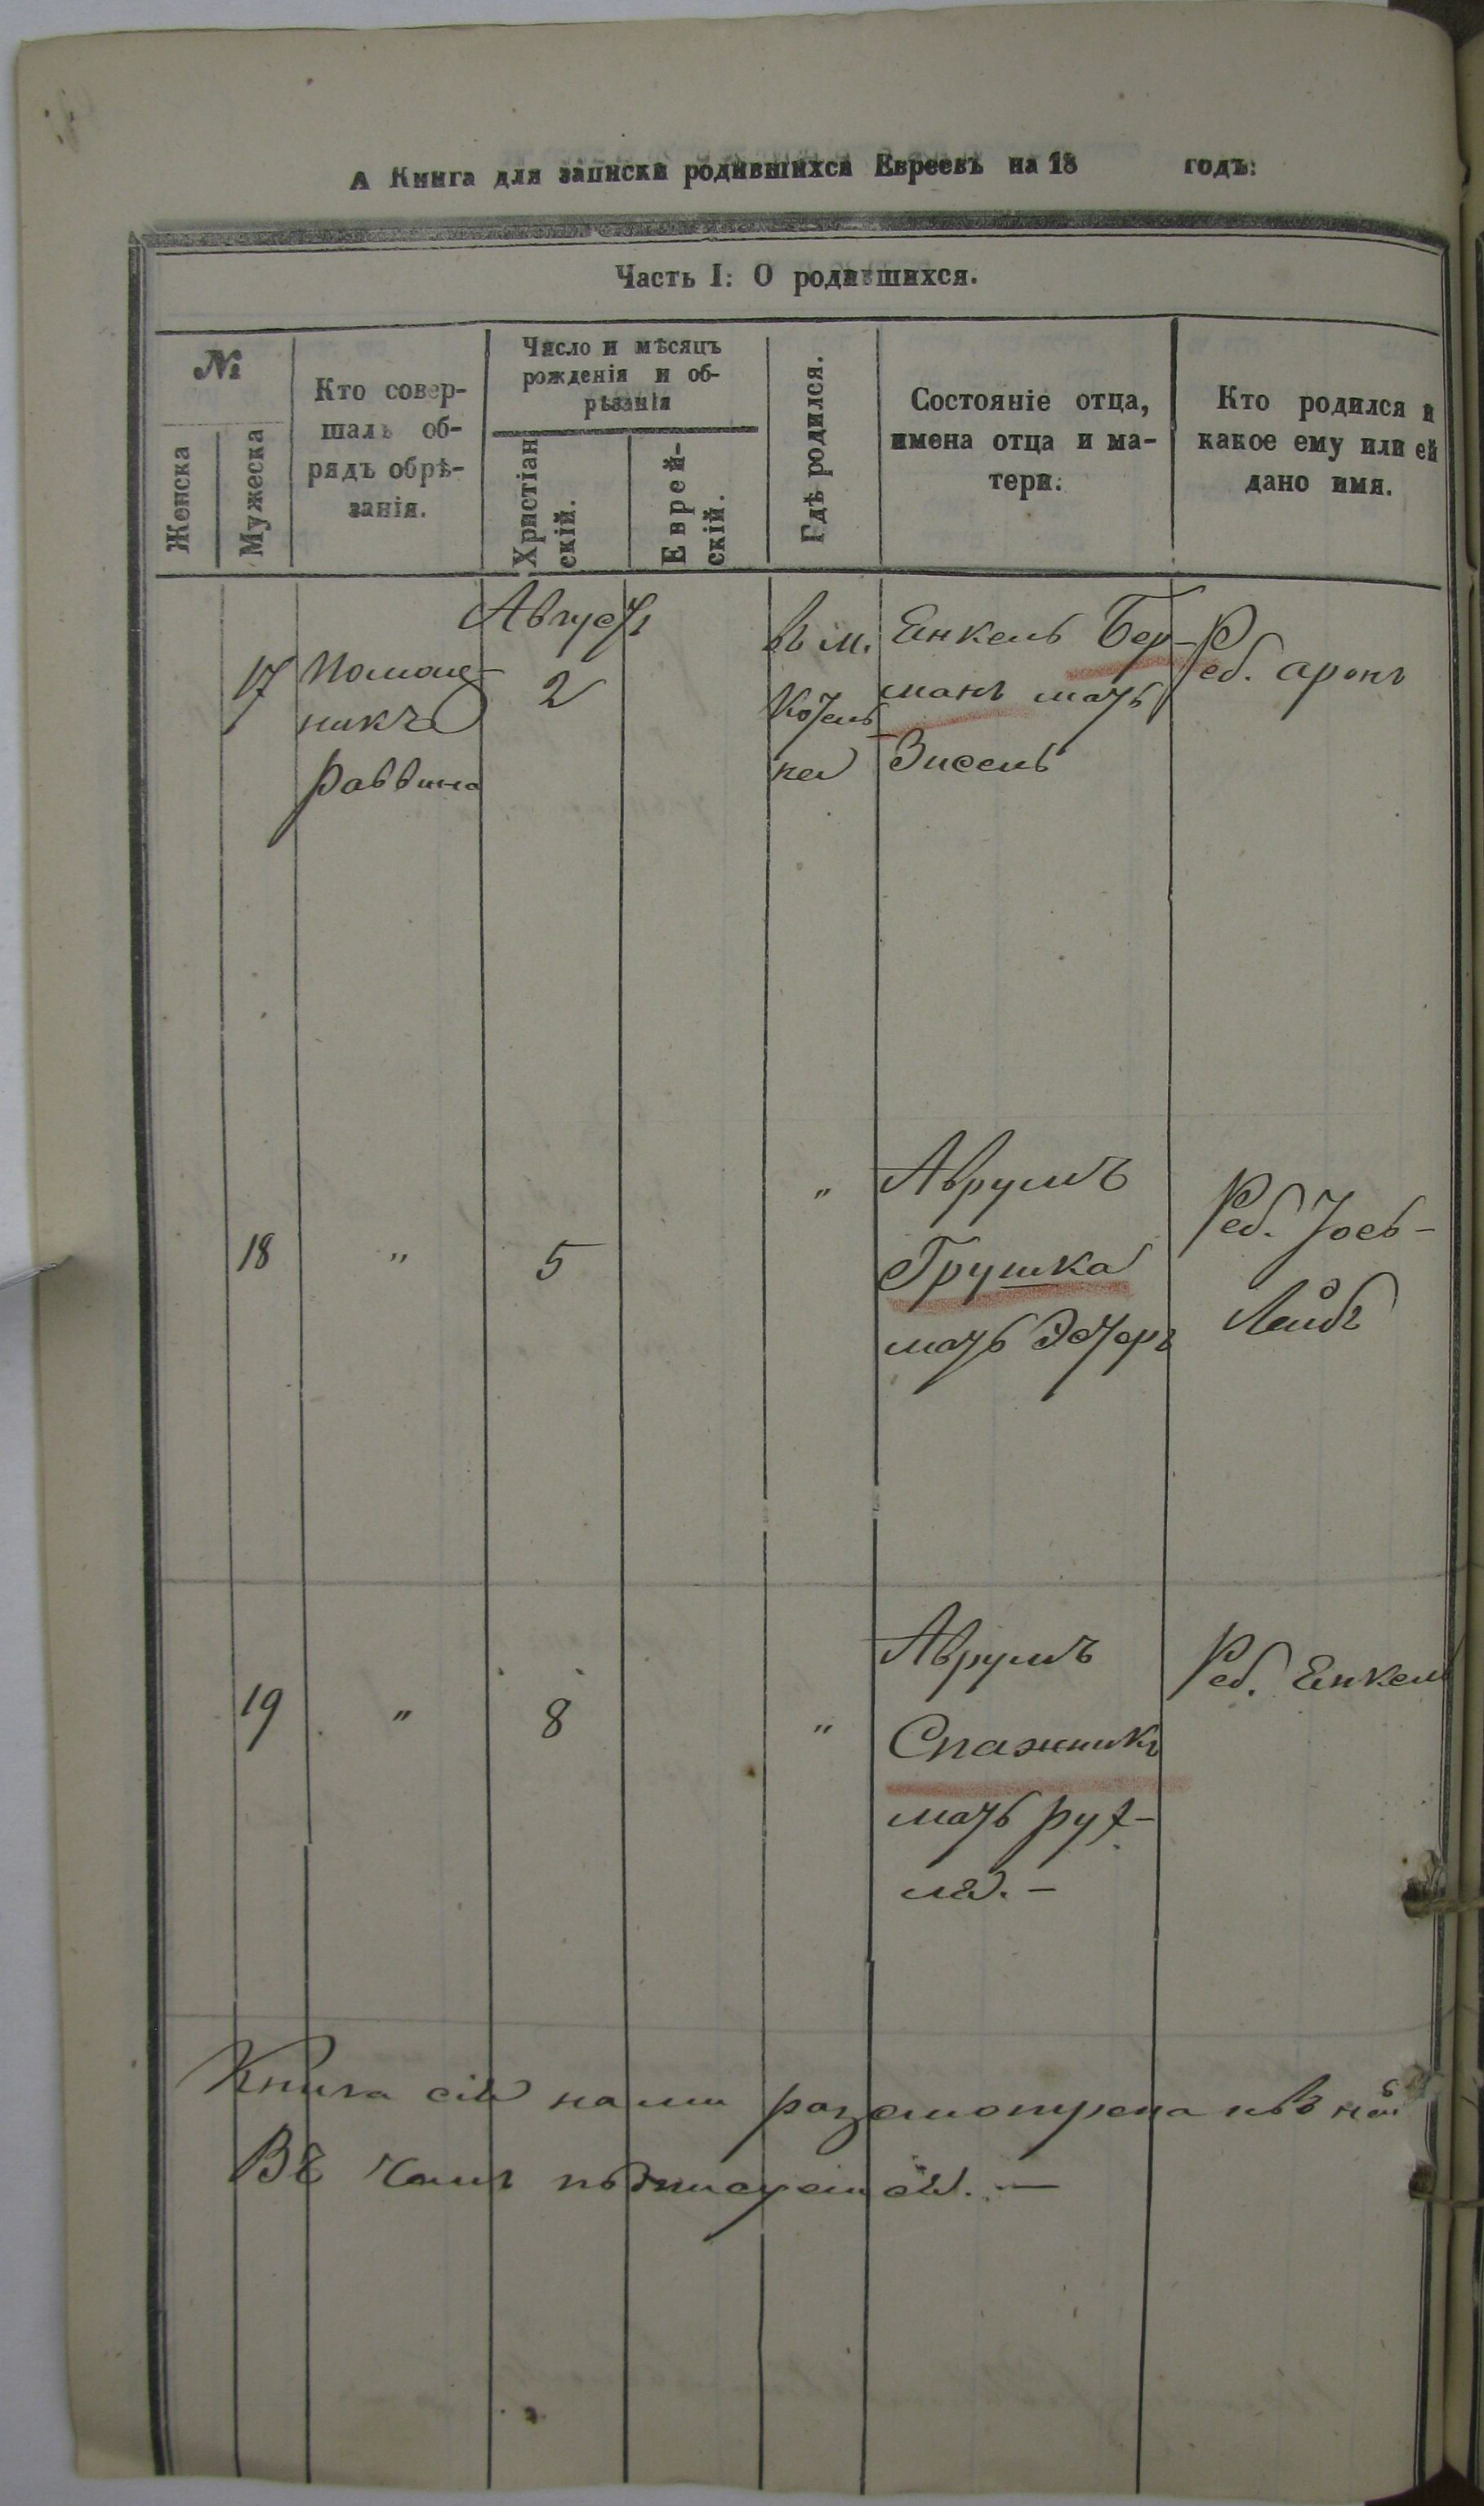 А Книга для записки родившихся Евреевъ на 18 годъ:
Часть I: О родившихся.
№
Женска
Мужеска
Кто совер-
шалъ об-
рядъ обрѣ-
занія.
Число и мѣсяцъ
рожденія и об-
рѣзанія
Христіан
скій.
Еврей-
скій.
Гдѣ родился.
Состояніе отца,
имена отца и ма-
тери.
Кто родился и
какое ему или ей
дано имя.
Августъ
17
Помощ-
никъ
раввина
2
въ м.
Котель
ня
Енкель Бер-
манъ мать
Зисель
Реб. аронъ
18
"
5
"
Аврумъ
Грушка
мать Эстеръ
Реб. Іось-
Лейбъ
19
"
8
"
Аврумъ
Спажникъ
мать рух-
ля. —
Реб. Енкель
Книга сія нами разсмотрена
Въ чемъ подписуемся. —